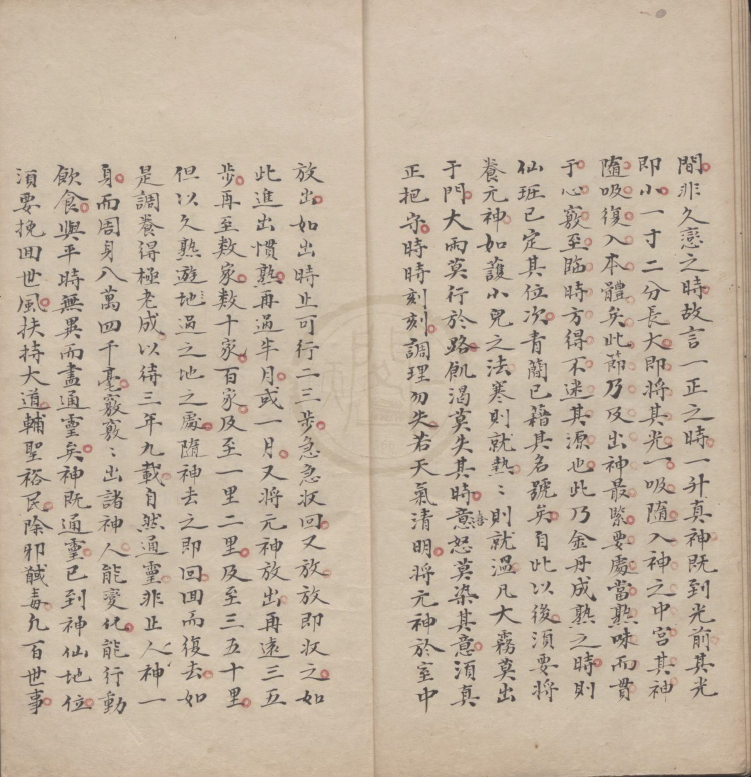 間非久戀之時故言一正之時一升真神既到光前其光
即小一寸二分長大即將其光一吸隨入神之中宮其神
隨吸復入本體矣此節乃及出神最緊要處當熟味而貫
于心竅至臨時方得不迷其源也此乃金丹成熟之時則
仙班已定其位次青蘭已籍其名號矣自此以後須要將
養元神如護小兒之法寒則就熱〻則就溫凡大霧莫出
于門大雨莫行於路飢渴莫失其時喜怒莫染其意須真
正把守時時刻刻調理勿失若天氣清明將元神於室中
放出如出時止可行二三步急急收回又放放即收之如
此進出慣熟再過半月或一月又將元神放出再遠三五
步再至数家数十家百家及至一里二里及至三五十里
但以久熟遊地過之地之處隨神去之即回回而復去如
是調養得極老成以待三年九載自然通靈非止人神一
身而周身八萬四千毫竅竅〻出諸神人能變化能行動
飲食與平時無異而盡通靈矣神既通靈已到神仙地位
須要挽回世風扶持大道輔聖裕民除邪馘毒凡百世事